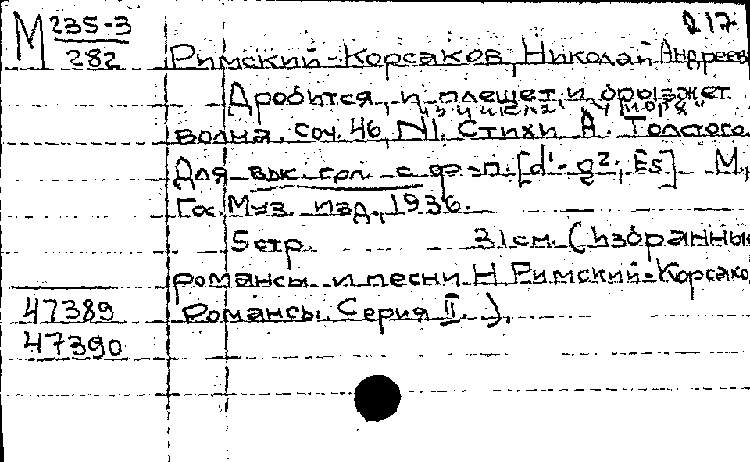 217
М 235-3
282
Римский-Корсаков, Николай Андреев
Дробится, и плещет, и брызжет
"из цикла "У моря"
волна. Соч. 46, N1. Стихи А. Толстого
Для выс. гол. с ф-п. [d¹-g²; Es] М.,
Гос. Муз. изд., 1936.
5 стр. 31 см. (Избранные
романсы и песни Н. Римский-Корсако
47389 Романсы. Серия II.).
47390